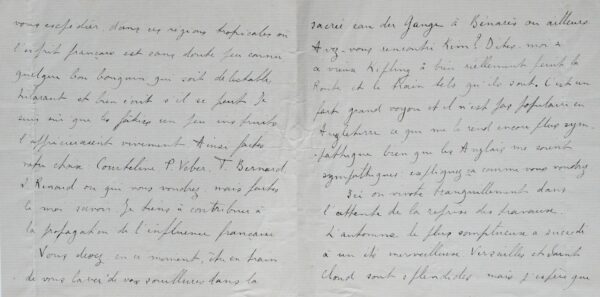 vous expédier, dans ces régions tropicales où
l'esprit français est sans doute peu connu
quelque bon bouquin qui soit délectable,
hilarant et bien écrit s'il se peut. Je
suis sûr que les un peu instruits
l'apprécieraient vivement. Ainsi faites
votre choix Courteline P. Veber, T. Bernard
J. Renard ou qui vous voudrez, mais faites
le moi savoir. Je tiens à contribuer à
la propagation de l'influence française
Vous devez en ce moment, être en train
de vous laver de vos souillures dans la
sacrée eau du Gange à Bénarès ou ailleurs
Avez-vous rencontré Kim? Dites-moi si
ce vieux Kipling a bien réellement peint la
Route et le train tels qu'ils sont. C'est un
fort grand voyou et il n'est pas populaire en
Angleterre ce qui me le rend encore plus sym-
pathique bien que les Anglais me soient
sympathiques: expliquez ça comme vous voudrez
Ici on vivote tranquillement dans
l'attente de la reprise des travaux.
L'automne le plus somptueux a succédé
à un été merveilleux Versailles et Saint
Cloud sont splendides mais j'espère que